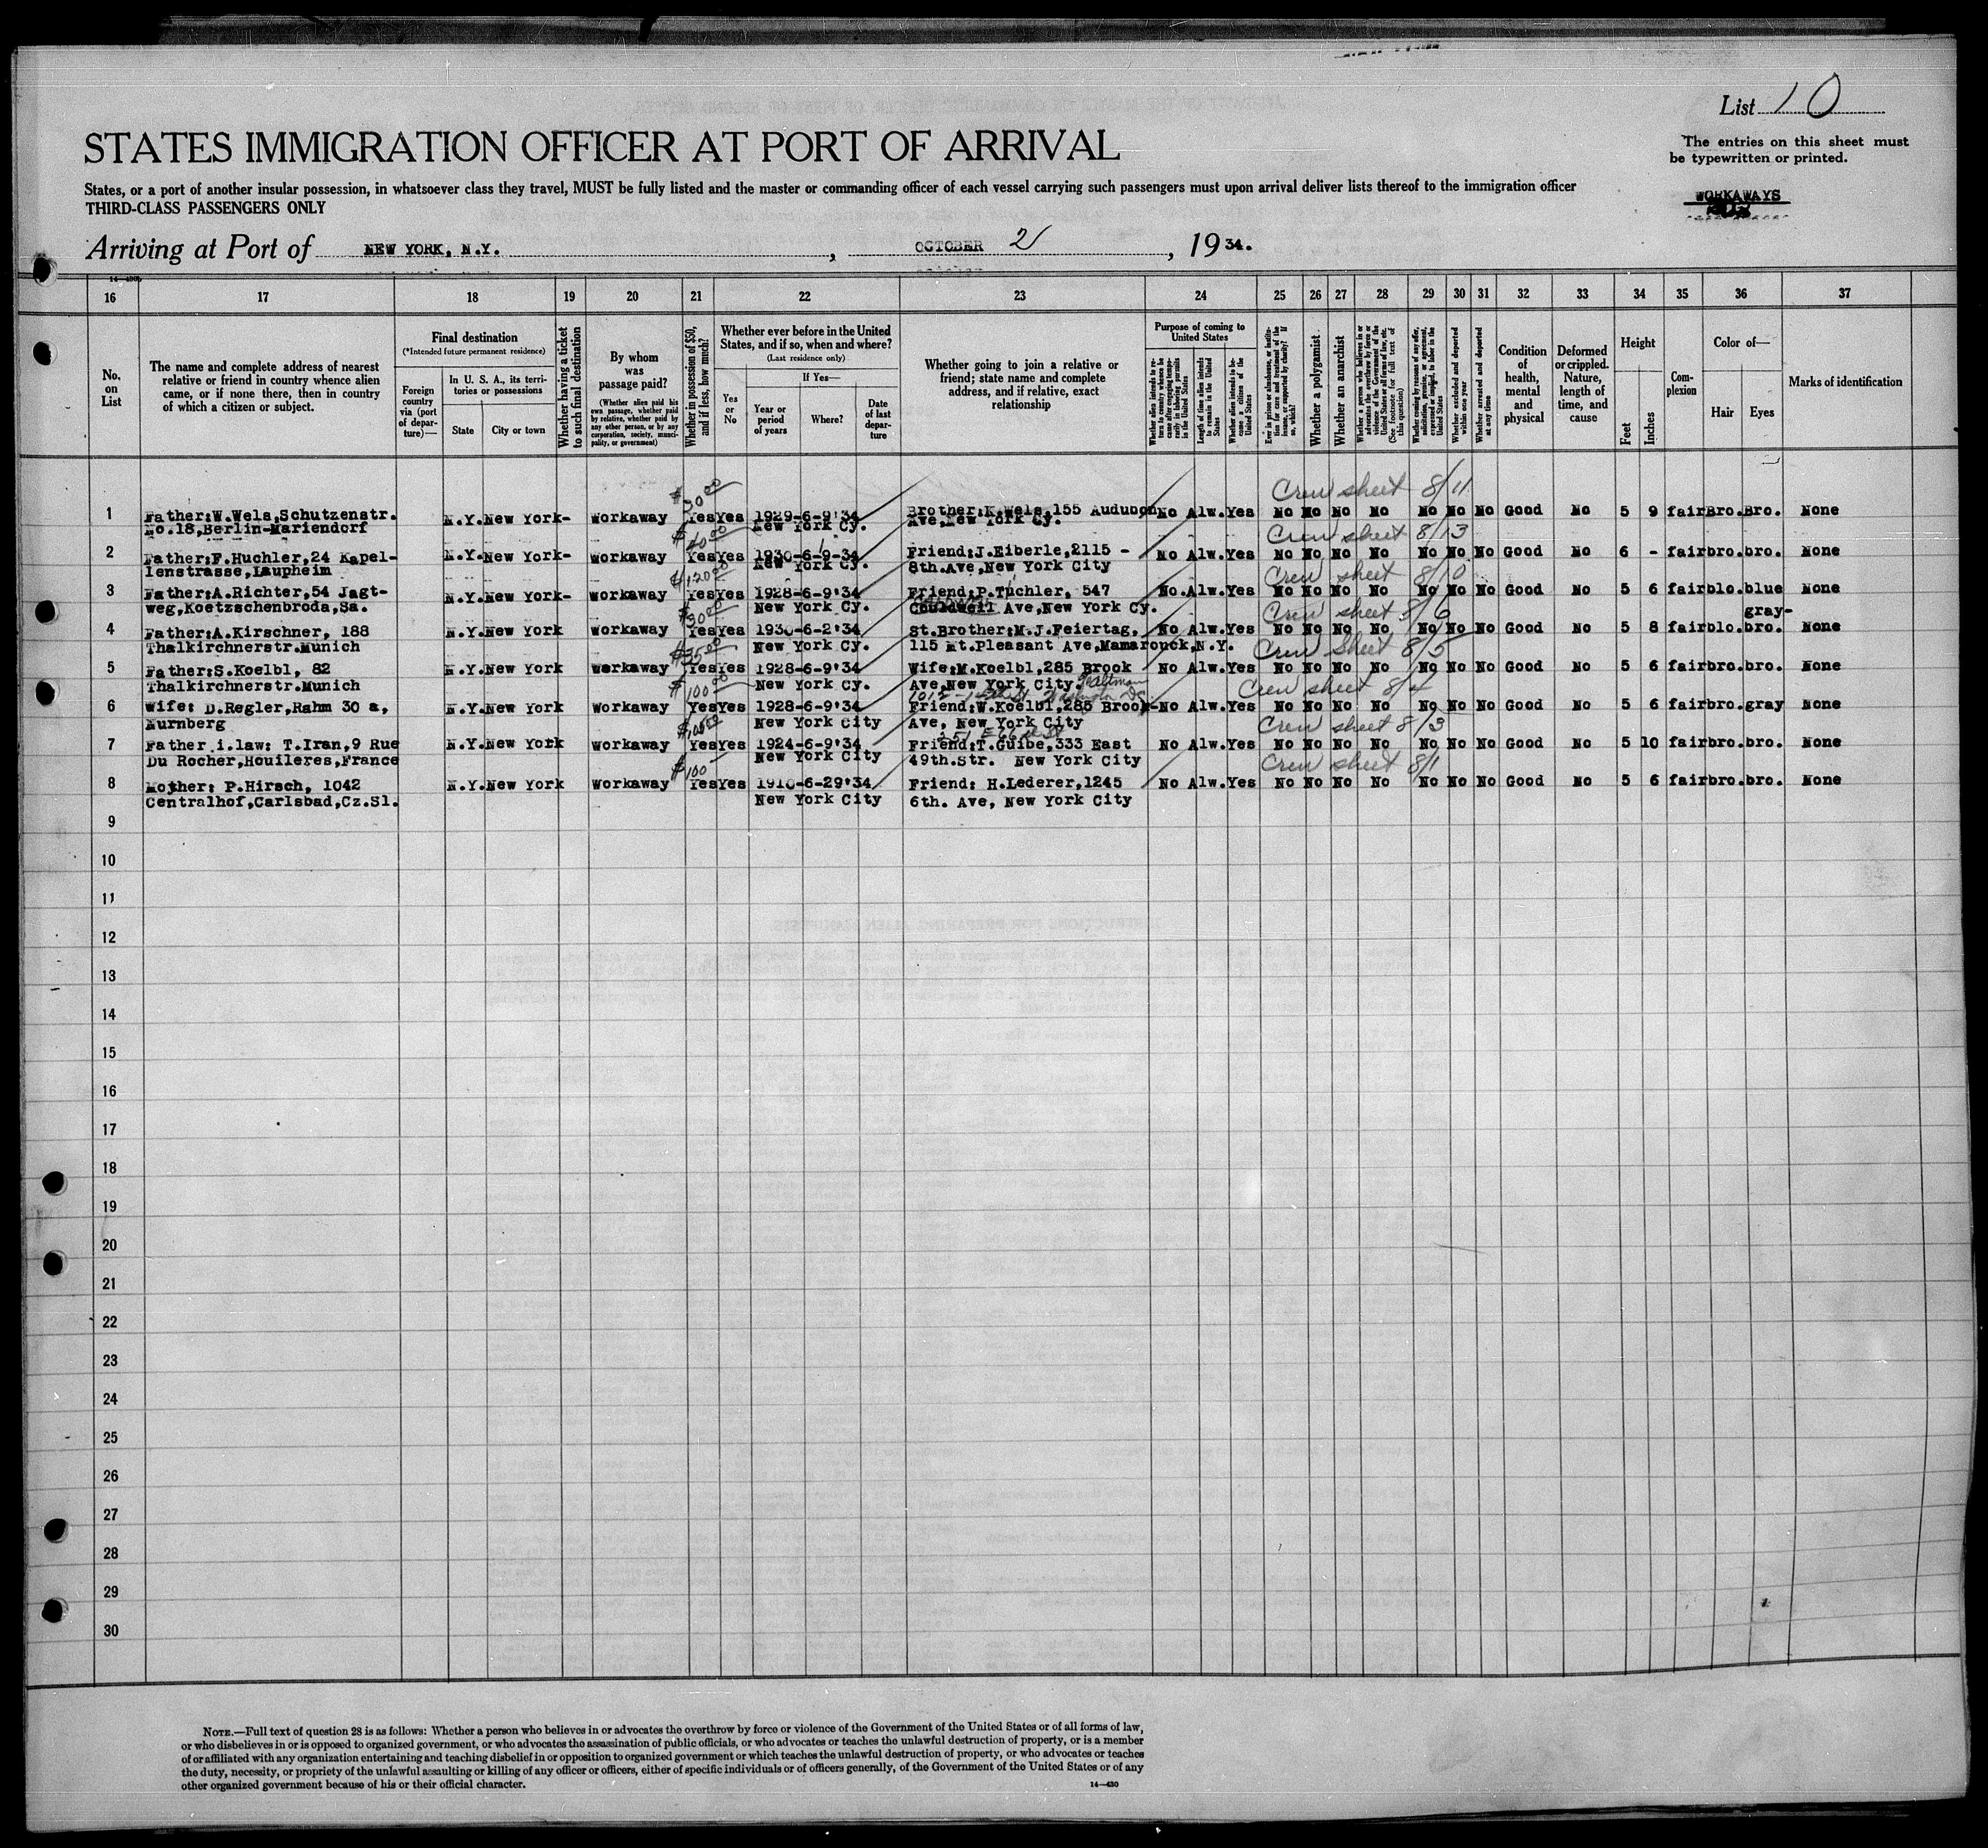 List 10
STATES IMMIGRATION OFFICER AT PORT OF ARRIVAL
The entries on this sheet must
be typewritten or printed.
States, or a port of another insular possession, in whatsoever class they travel, MUST be fully listed and the master or commanding officer of each vessel carrying such passengers must upon arrival deliver lists thereof to the immigration officer
THIRD-CLASS PASSENGERS ONLY
WORKAWAYS
Arriving at Port of NEW YORK, N.Y. , OCTOBER 2 , 1934.
16 17 18 19 20 21 22 23 24 25 26 27 28 29 30 31 32 33 34 35 36 37
No. on List
The name and complete address of nearest relative or friend in country whence alien came, or if none there, then in country of which a citizen or subject.
Final destination
(*Intended future permanent residence)
Foreign country via (port of departure)—
In U. S. A., its territories or possessions
State
City or town
Whether having a ticket to such final destination
By whom was passage paid?
(Whether alien paid his own passage, whether paid by relative, whether paid by any other person, or by any corporation, society, municipality, or government)
Whether in possession of $50, and if less, how much?
Whether ever before in the United States, and if so, when and where?
(Last residence only)
Yes or No
If Yes—
Year or period of years
Where?
Date of last departure
Whether going to join a relative or friend; state name and complete address, and if relative, exact relationship
Purpose of coming to United States
Whether alien intends to return to country whence he came after engaging temporarily in laboring pursuits in the United States
Length of time alien intends to remain in the United States
Whether alien intends to become a citizen of the United States
Ever in prison or almshouse, or institution for care and treatment of the insane, or supported by charity? If so, which?
Whether a polygamist
Whether an anarchist
Whether a person who believes in or advocates the overthrow by force or violence of the Government of the United States or all forms of law, etc. (See footnote for full text of this question)
Whether coming by reason of any offer, solicitation, promise, or agreement, expressed or implied, to labor in the United States
Whether excluded and deported within one year
Whether arrested and deported at any time
Condition of health, mental and physical
Deformed or crippled. Nature, length of time, and cause
Height
Feet
Inches
Complexion
Color of—
Hair
Eyes
Marks of identification
$30.00 Crew sheet 8/11
1 Father:W.Wels,Schutzenstr. N.Y. New York- Workaway Yes Yes 1929-6-9'34 Brother:K.Wels,155 Audubon No Alw. Yes No No No No No No No Good No 5 9 fair Bro. Bro. None
No.18,Berlin-Mariendorf New York Cy. Ave,New York Cy.
$40.00 Crew sheet 8/13
2 Father:F.Huchler,24 Kapel- N.Y. New York- Workaway Yes Yes 1930-6-9-34 Friend:J.Eiberle,2115 - No Alw. Yes No No No No No No No Good No 6 - fair bro. bro. None
lenstrasse,Laupheim New York Cy. 8th.Ave,New York City
$120.00 Crew sheet 8/10
3 Father:A.Richter,54 Jagt- N.Y. New York- Workaway Yes Yes 1928-6-9'34 Friend:P.Tuchler, 547 No. Alw. Yes No No No No No No No Good No 5 6 fair blo. blue None
weg,Koetzschenbroda,Sa. New York Cy. Ave,New York Cy.
$30.00 Crew sheet 8/6 gray-
4 Father:A.Kirschner, 188 N.Y. New York Workaway Yes Yes 1930-6-2'34 St.Brother:M.J.Feiertag, No Alw. Yes No No No No No No No Good No 5 8 fair blo. bro. None
Thalkirchnerstr.Munich New York Cy. 115 Mt.Pleasant Ave,Mamarouck,N.Y.
$35.00 Crew sheet 8/5
5 Father:S.Koelbl, 82 N.Y. New York Workaway Yes Yes 1928-6-9'34 Wife:M.Koelbl,285 Brook No Alw. Yes No No No No No No No Good No 5 6 fair bro. bro. None
Thalkirchnerstr.Munich New York Cy. Ave,New York City.
$100.00 Washington DC. Crew sheet 8/4
6 Wife: D.Regler,Rahm 30 a, N.Y. New York Workaway Yes Yes 1928-6-9'34 Friend:W.Koelbl,285 Brook- No Alw. Yes No No No No No No No Good No 5 6 fair bro. gray None
Nurnberg New York City Ave, New York City
Crew sheet 8/3
7 Father i.law: T.Iran,9 Rue N.Y. New York Workaway Yes Yes 1924-6-9'34 Friend:T.Guibe,333 East No Alw. Yes No No No No No No No Good No 5 10 fair bro. bro. None
Du Rocher,Houileres,France New York City 49th.Str. New York City
$100 Crew sheet 8/1
8 Mother: P.Hirsch, 1042 N.Y. New York Workaway Yes Yes 1910-6-29'34 Friend: H.Lederer,1245 No Alw. Yes No No No No No No No Good No 5 6 fair bro. bro. None
Centralhof,Carlsbad,Cz.Sl. New York City 6th. Ave, New York City
9
10
11
12
13
14
15
16
17
18
19
20
21
22
23
24
25
26
27
28
29
30
NOTE.—Full text of question 28 is as follows: Whether a person who believes in or advocates the overthrow by force or violence of the Government of the United States or of all forms of law,
or who disbelieves in or is opposed to organized government, or who advocates the assassination of public officials, or who advocates or teaches the unlawful destruction of property, or is a member
of or affiliated with any organization entertaining and teaching disbelief in or opposition to organized government or which teaches the unlawful destruction of property, or who advocates or teaches
the duty, necessity, or propriety of the unlawful assaulting or killing of any officer or officers, either of specific individuals or of officers generally, of the Government of the United States or of any
other organized government because of his or their official character.
14—430